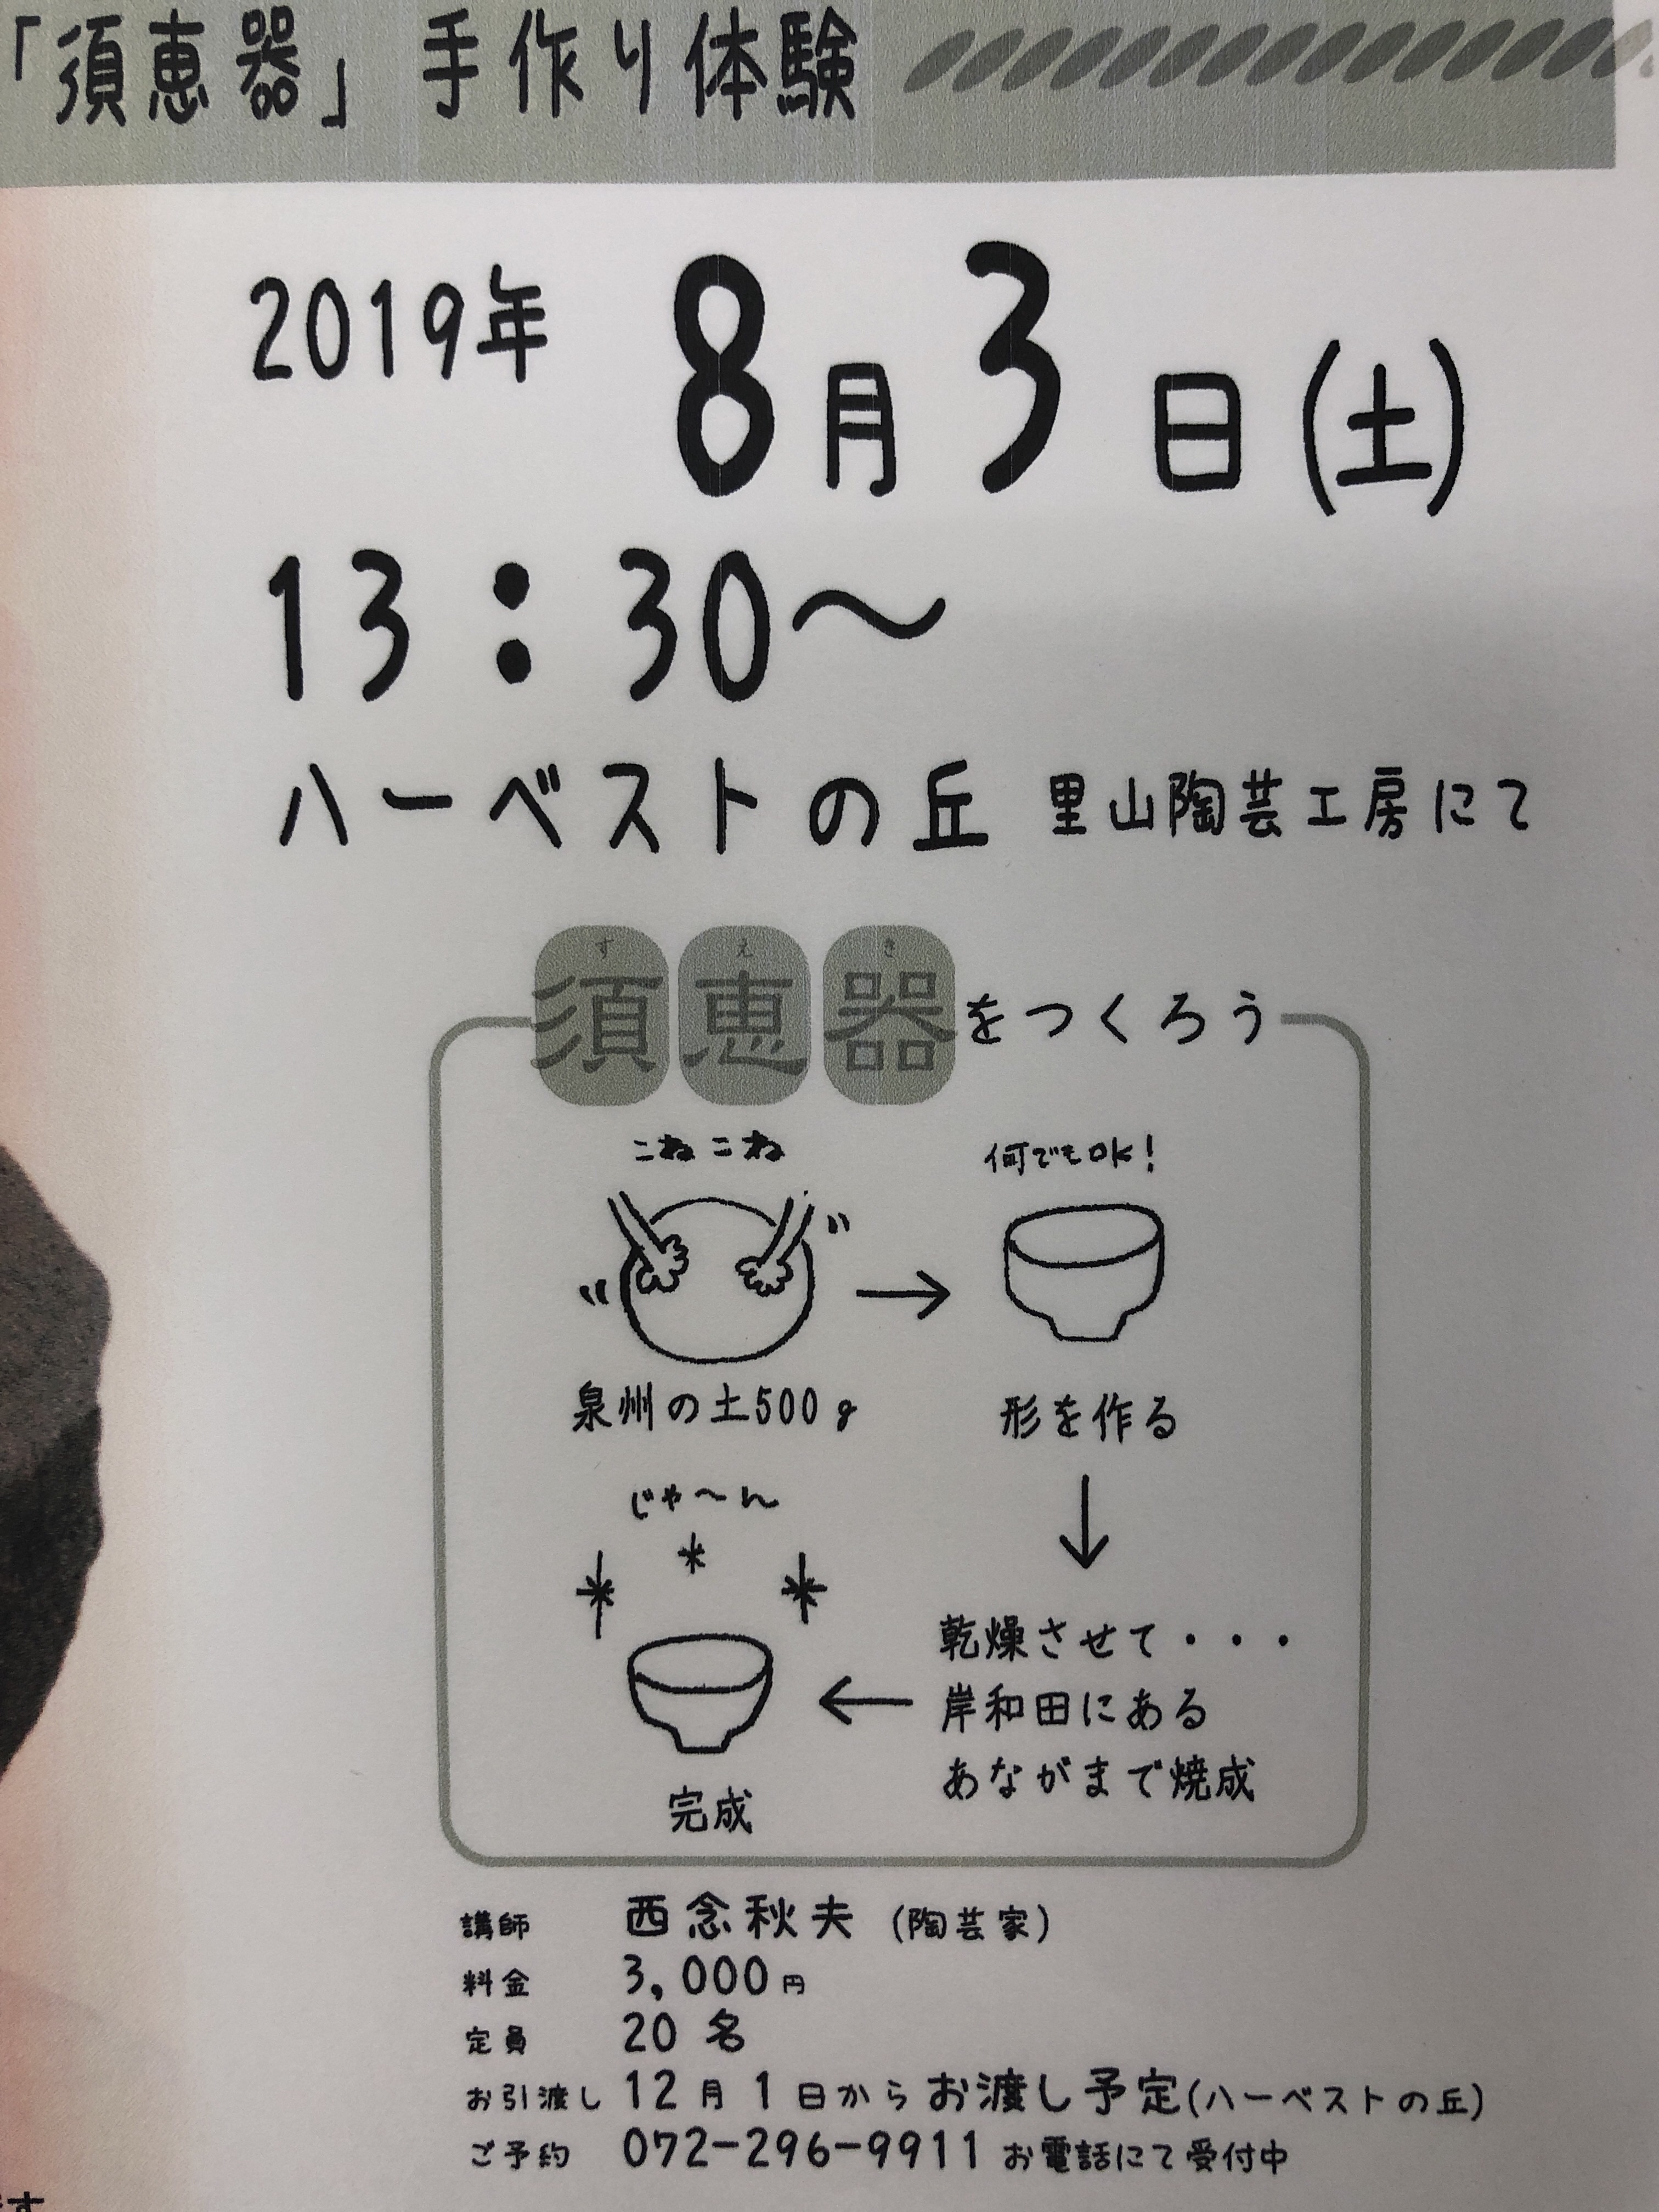 「須恵器」手作り体験
2019年 8月3日(土)
13:30〜
ハーベストの丘 里山陶芸工房にて
すえき
須恵器をつくろう
こねこね
何でもOK!
泉州の土500g
形を作る
じゃ〜ん
乾燥させて・・・
岸和田にある
あながまで焼成
完成
講師 西念秋夫(陶芸家)
料金 3,000円
定員 20名
お引渡し 12月1日からお渡し予定(ハーベストの丘)
ご予約 072-296-9911 お電話にて受付中